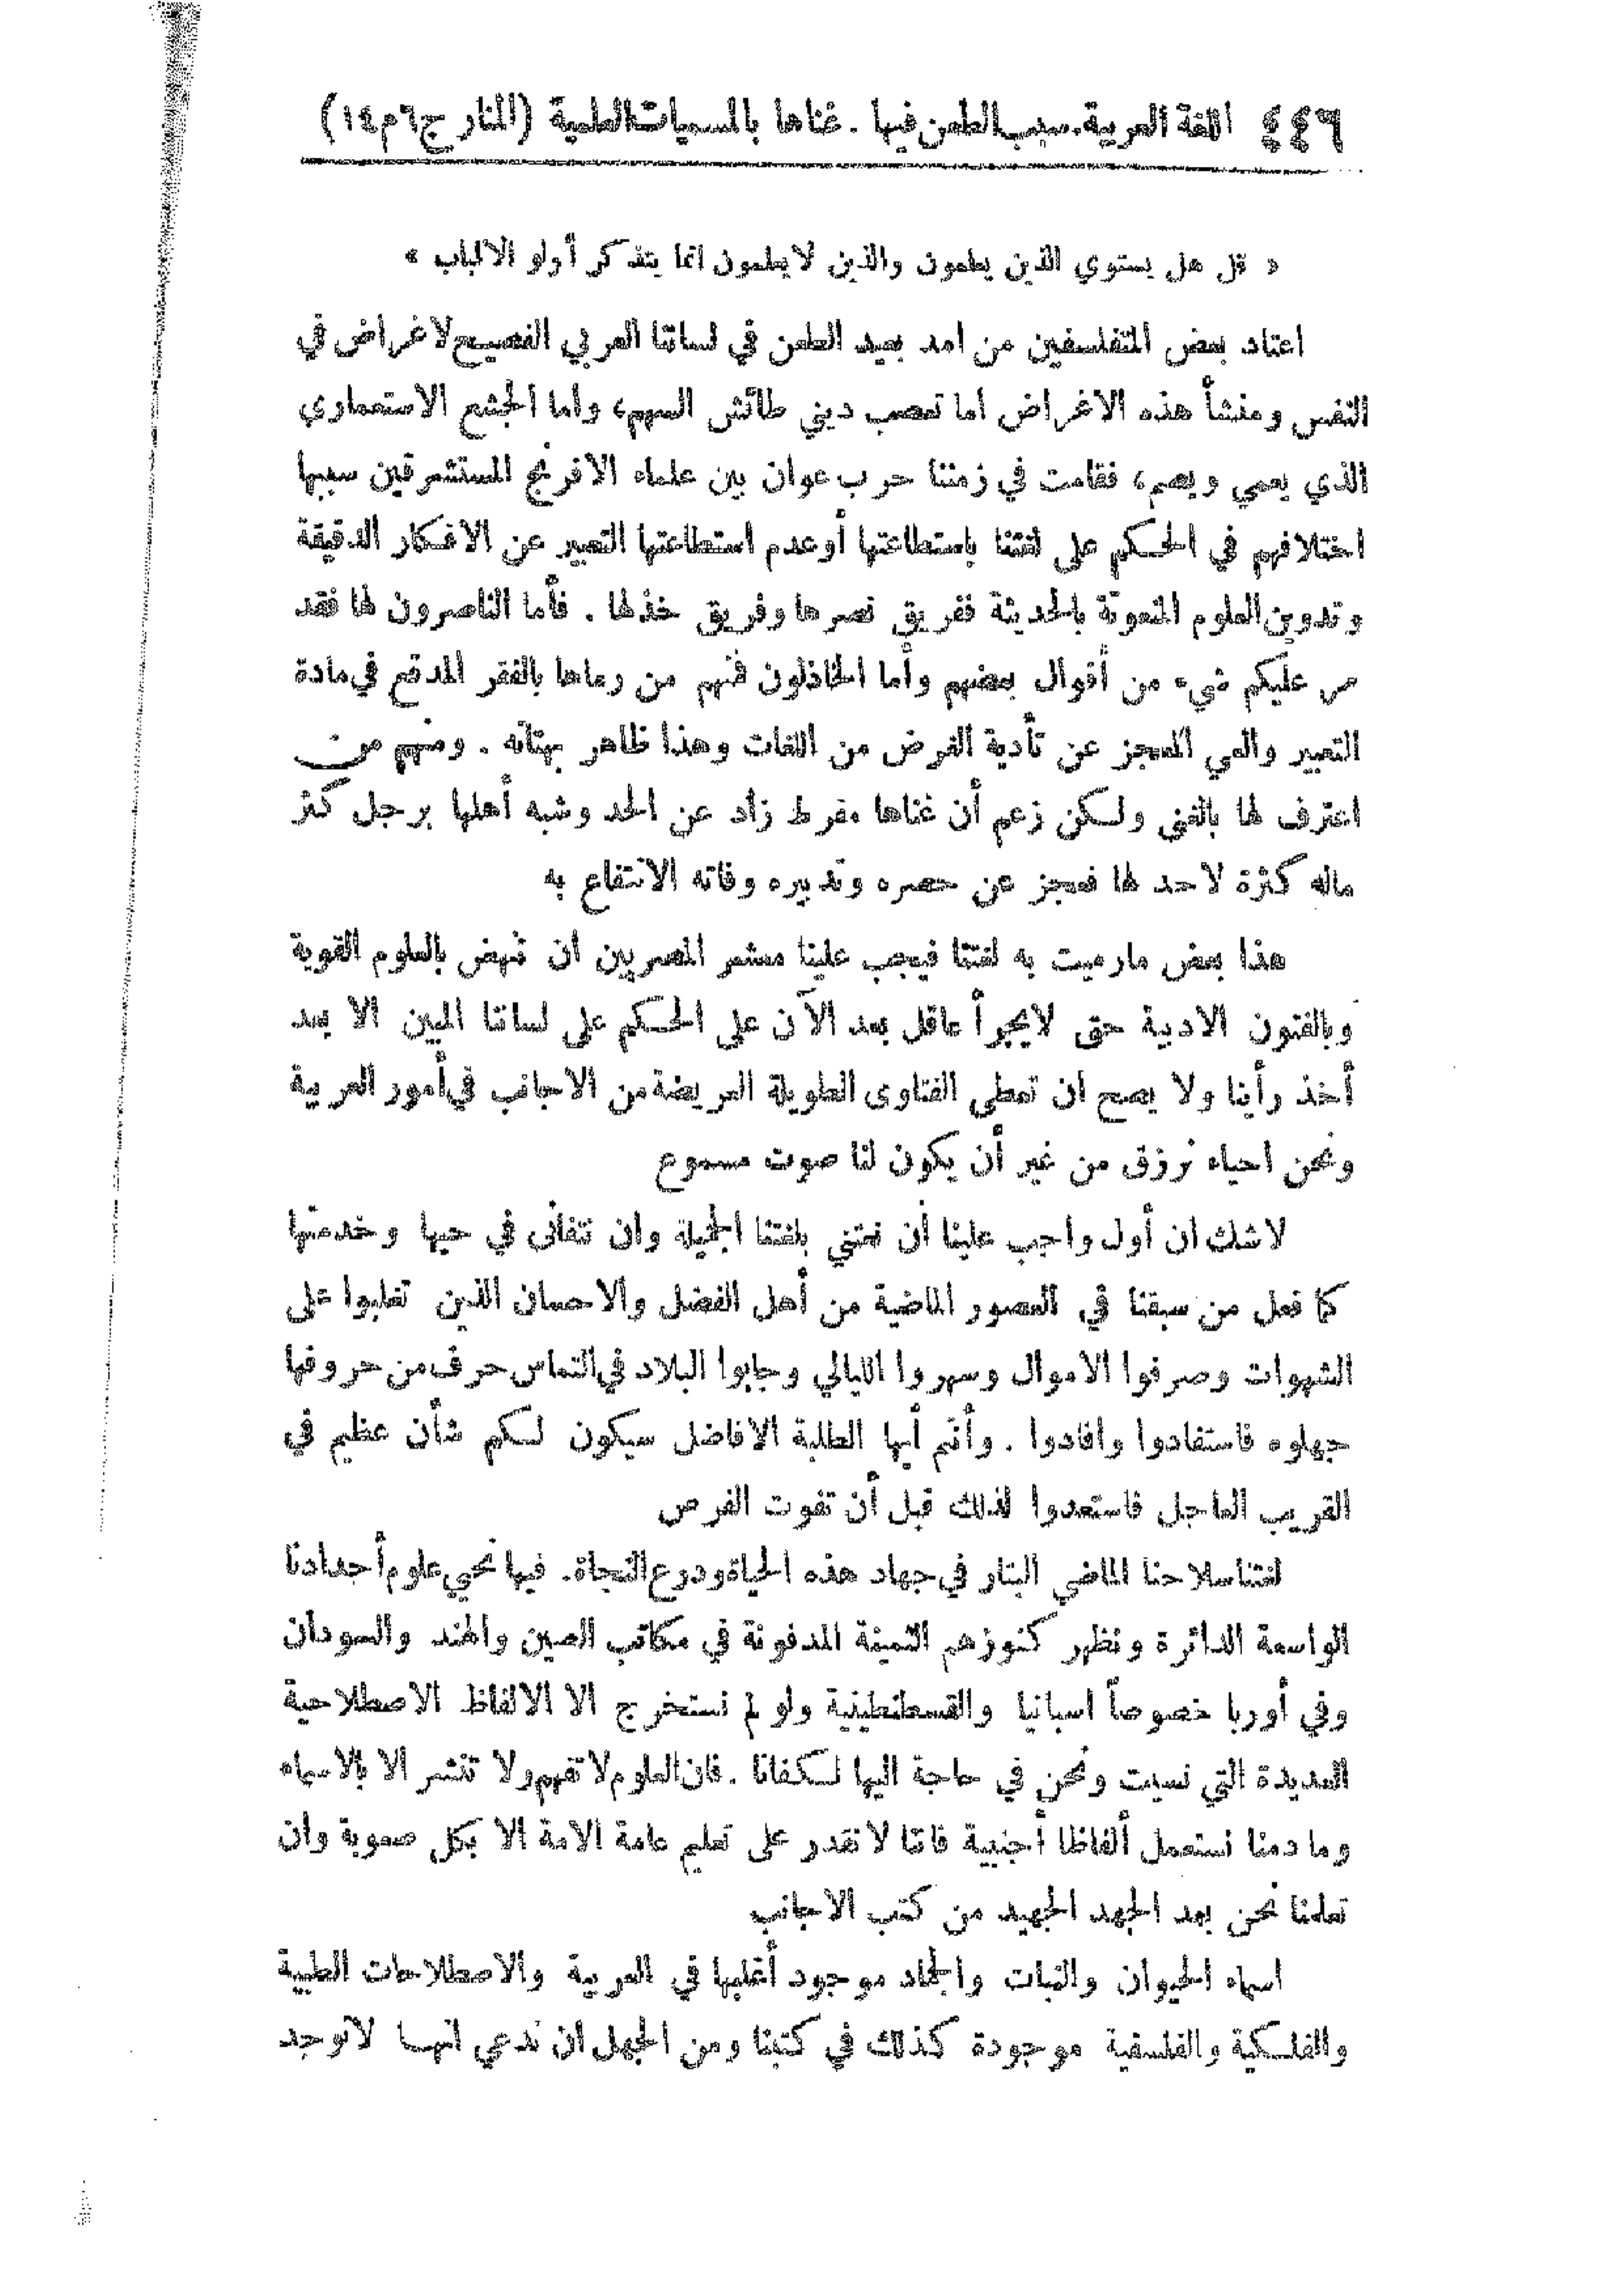 ٤٤٦ اللغة العربية. سبب الطعن فيها . غناها بالمسميات العلمية (المنار ج٦م١٤)
« قل هل يستوي الذين يعلمون والذين لا يعلمون انما يتذكر أولو الالباب »
اعتاد بعض المتفلسفين من امد بعيد الطعن في لساننا العربي الفصيح لاغراض في
النفس ومنشأ هذه الاغراض اما تعصب ديني طائش السهم، واما الجشع الاستعماري
الذي يعمي ويصم، فقامت في زمننا حرب عوان بين علماء الافرنج المستشرقين سببها
اختلافهم في الحكم على لغتنا باستطاعتها أو عدم استطاعتها التعبير عن الافكار الدقيقة
وتدوين العلوم المنعوتة بالحديثة ففريق نصرها وفريق خذلها . فأما الناصرون لها فقد
مر عليكم شيء من أقوال بعضهم وأما الخاذلون فمنهم من رماها بالفقر المدقع في مادة
التعبير والعي المعجز عن تأدية الغرض من اللغات وهذا ظاهر بهتانه . ومنهم من
اعترف لها بالغنى ولكن زعم أن غناها مفرط زاد عن الحد وشبه أهلها برجل كثر
ماله كثرة لا حد لها فعجز عن حصره وتدبيره وفاته الانتفاع به
هذا بعض مارميت به لغتنا فيجب علينا معشر المصريين ان ننهض بالعلوم القوية
وبالفنون الادبية حتى لايجرأ عاقل بعد الآن على الحكم على لساننا المبين الا بعد
أخذ رأينا ولا يصح ان تعطى الفتاوى الطويلة العريضة من الاجانب في أمور العربية
ونحن احياء نرزق من غير أن يكون لنا صوت مسموع
لاشك ان أول واجب علينا أن نعتني بلغتنا الجميلة وان نتفانى في حبها وخدمتها
كما فعل من سبقنا في العصور الماضية من أهل الفضل والاحسان الذين تغلبوا على
الشهوات وصرفوا الاموال وسهروا الليالي وجابوا البلاد في التماس حرف من حروفها
جهلوه فاستفادوا وافادوا . وأنتم أيها الطلبة الافاضل سيكون لكم شأن عظيم في
القريب العاجل فاستعدوا لذلك قبل أن تفوت الفرص
لغتنا سلاحنا الماضي البتار في جهاد هذه الحياة ودرع النجاة. فيها نحيي علوم أجدادنا
الواسعة الدائرة ونظهر كنوزهم الثمينة المدفونة في مكاتب الصين والهند والسودان
وفي أوربا خصوصاً اسبانيا والقسطنطينية ولو لم نستخرج الا الالفاظ الاصطلاحية
العديدة التي نسيت ونحن في حاجة اليها لكفانا . فان العلوم لا تفهم ولا تنتشر الا بالاسماء
وما دمنا نستعمل ألفاظا أجنبية فاننا لا نقدر على تعليم عامة الامة الا بكل صعوبة وان
تعلمنا نحن بعد الجهد الجهيد من كتب الاجانب
اسماء الحيوان والنبات والجماد موجود أغلبها في العربية والاصطلاحات الطبية
والفلكية والفلسفية موجودة كذلك في كتبنا ومن الجهل ان ندعي انهـا لاتوجد